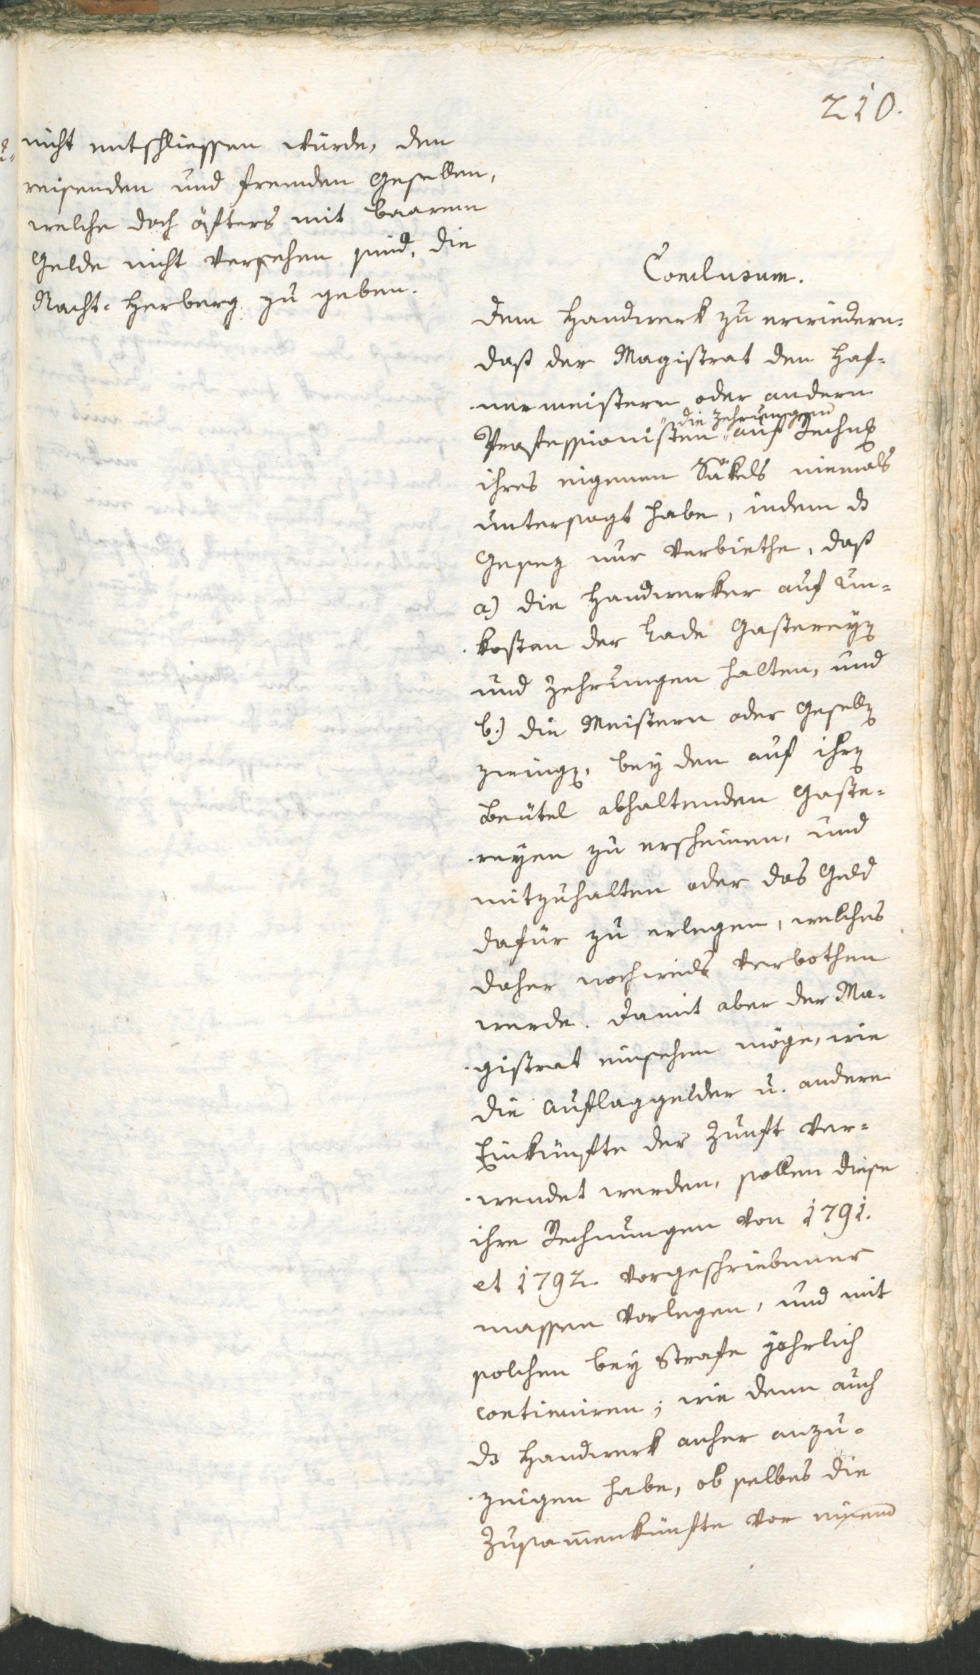 210.
nicht entschliessen würde, den
reisenden und fremden Gesellen,
welche doch öfters mit baarem
Gelde nicht versehen sind, die
Nacht-Herberg zu geben.
Conclusum.
Dem Handwerk zu erwiedern:
daß der Magistrat den Haf-
nermeistern oder andern
Professionisten die Zehrungen auf Rechng
ihres eigenen Säkels niemals
untersagt habe, indem ds
Gesez nur verbiethe, daß
a) die Handwerker auf Un-
kosten der Lade Gastereyen
und Zehrungen halten, und
b.) die Meistern oder Gesellen
zwingen, bey den auf ihren
Beutel abhaltenden Gaste-
reyen zu erscheinen, und
mitzuhalten oder das Geld
dafür zu erlegen, welches
daher nochmals verbothen
werde. Damit aber der Ma-
gistrat einsehen möge, wie
die Auflaggelder u. andere
Einkünfte der Zunft ver-
wendet werden, sollen diese
ihre Rechnungen von 1791.
et 1792. vorgeschriebner
massen vorlegen, und mit
solchen bey Strafe jährlich
continuiren; wie denn auch
ds Handwerk anher anzu-
zeigen habe, ob selbes die
Zusammenkünfte vor